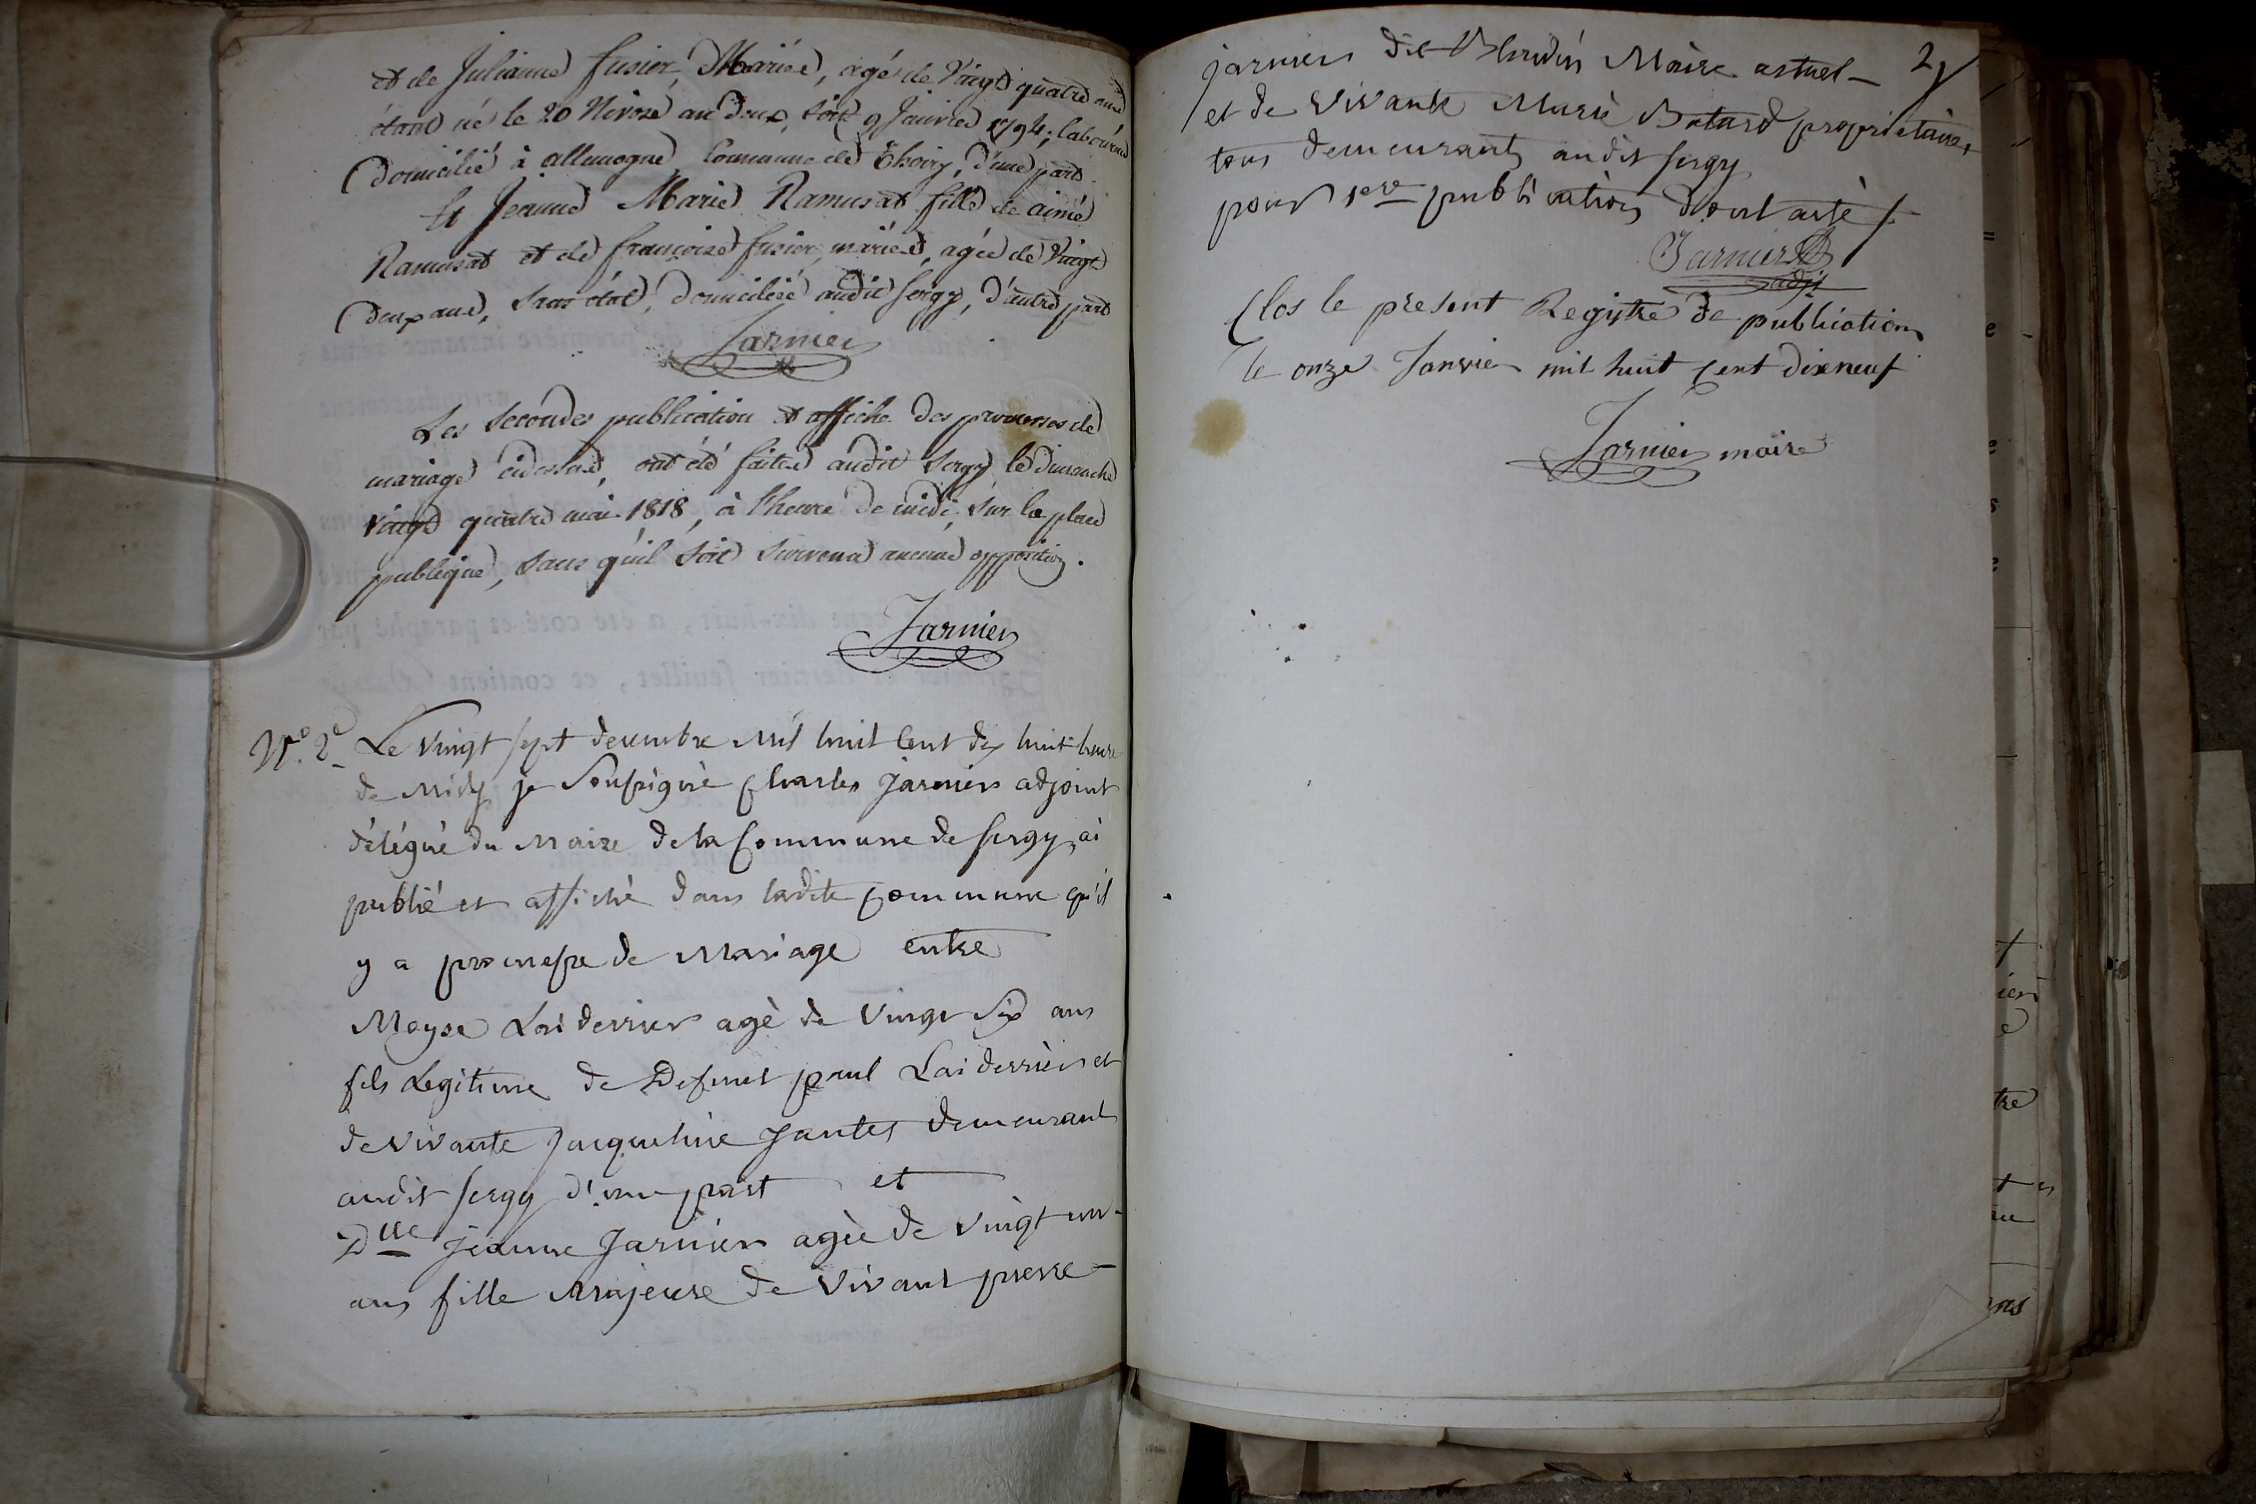 et de Julianne fusier, Mariée, agé de Vingt quatre ans
étant né le 20 Nivose an deux, soit 9 Janvier 1794; laboureur
domicilié à allemogne Commune de Thoiry, d'une part
Et Jeanne Marie Ramusat fille de aimé
Ramusat et de françoise fusier, mariée, agée de Vingt
deux ans, sans état, domiciliée audit sergy, d'autre part
Jarnier
Les secondes publication et affiche des promesses de
mariage cidessus, ont été faites audit Sergy le dimanche
vingt quatre mai 1818, à l'heure de midi, sur la place
publique, sans qu'il soit survenu aucune opposition.
Jarnier
N.° 2.e Le Vingt sept decembre Mil huit Cent dix huit heure
de Midy je Soussigné Charles Jarnier adjoint
délégué du Maire de la Commune de Sergy, ai
publié et affiché dans ladite Commune qu'il
y a promesse de Mariage entre
Moyse Laiderrier agè de Vingt Six ans
fils Legitime de Defunt paul Laiderrier et
de vivante Jacqueline Jantet demeurant
audit sergy d'une part et
Dlle Jeanne Jarnier agèe de Vingt un
ans fille Majeure de Vivant pierre
2
Jarnier dit Maire actuel
et de Vivante Marie Batard propriétaires
tous demeurants audit sergy
pour 1ere publication dont acte
Jarnier
adjt
Clos le present Registre de publication
le onze Janvier mil huit Cent dixneuf
Jarnier maire